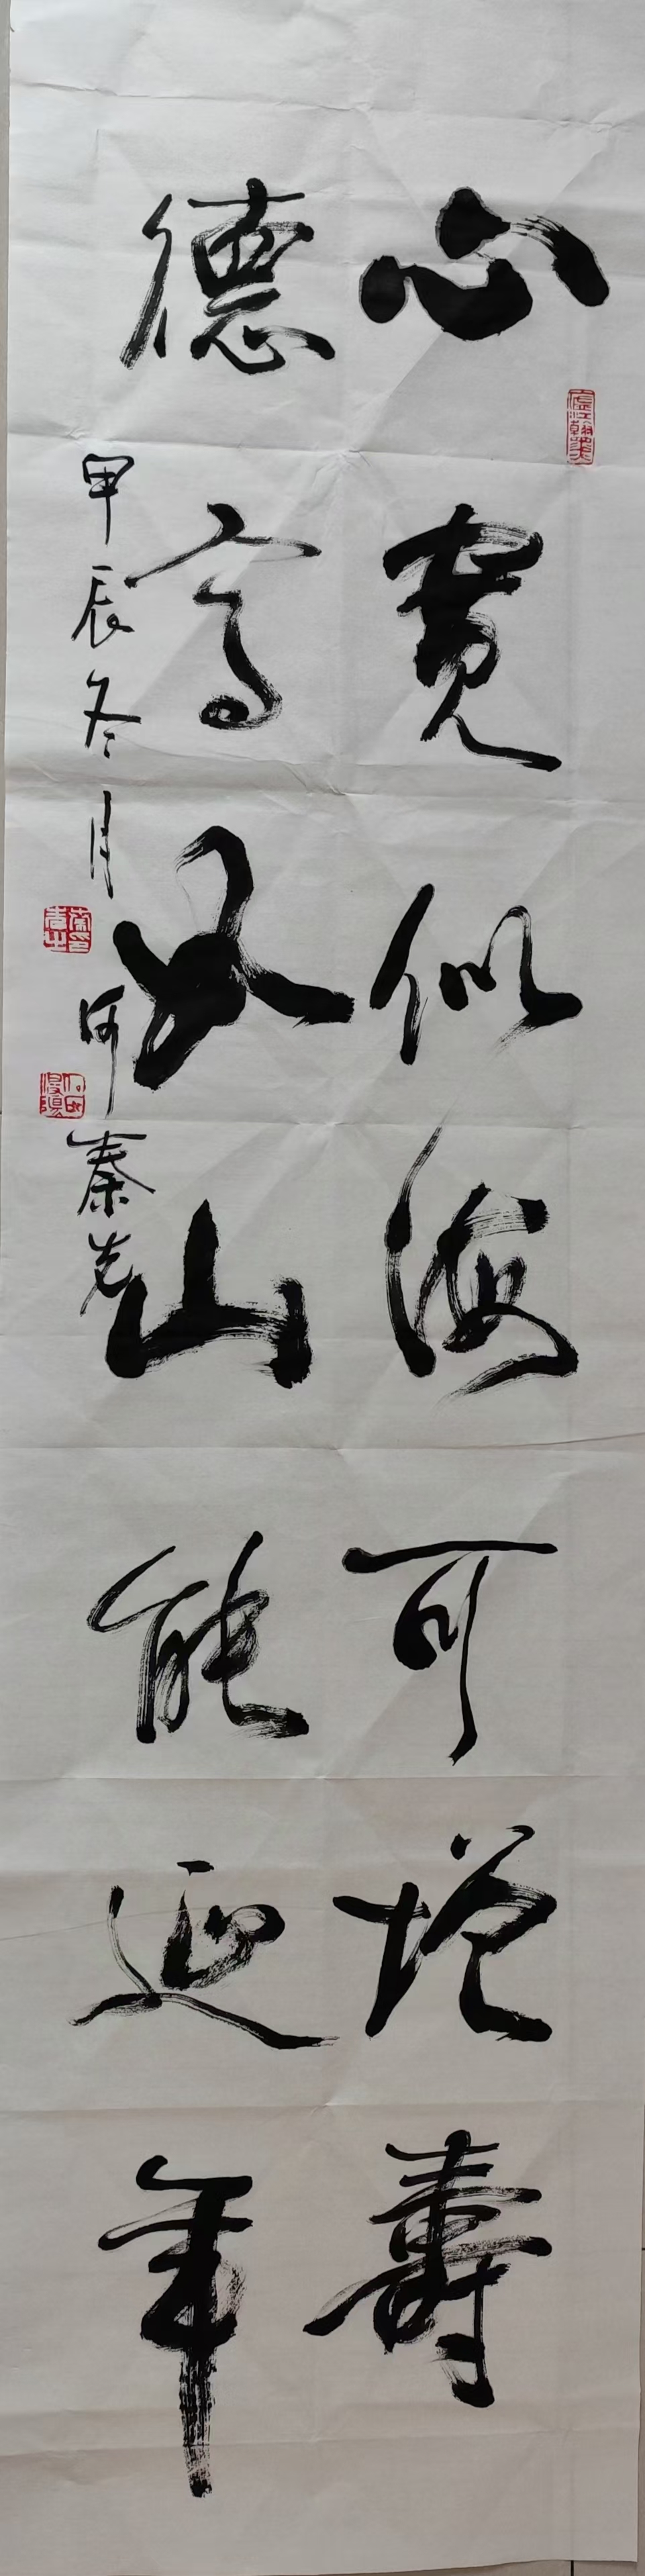 心寬似海可增壽
德高如山能延年
甲辰冬月何秦光